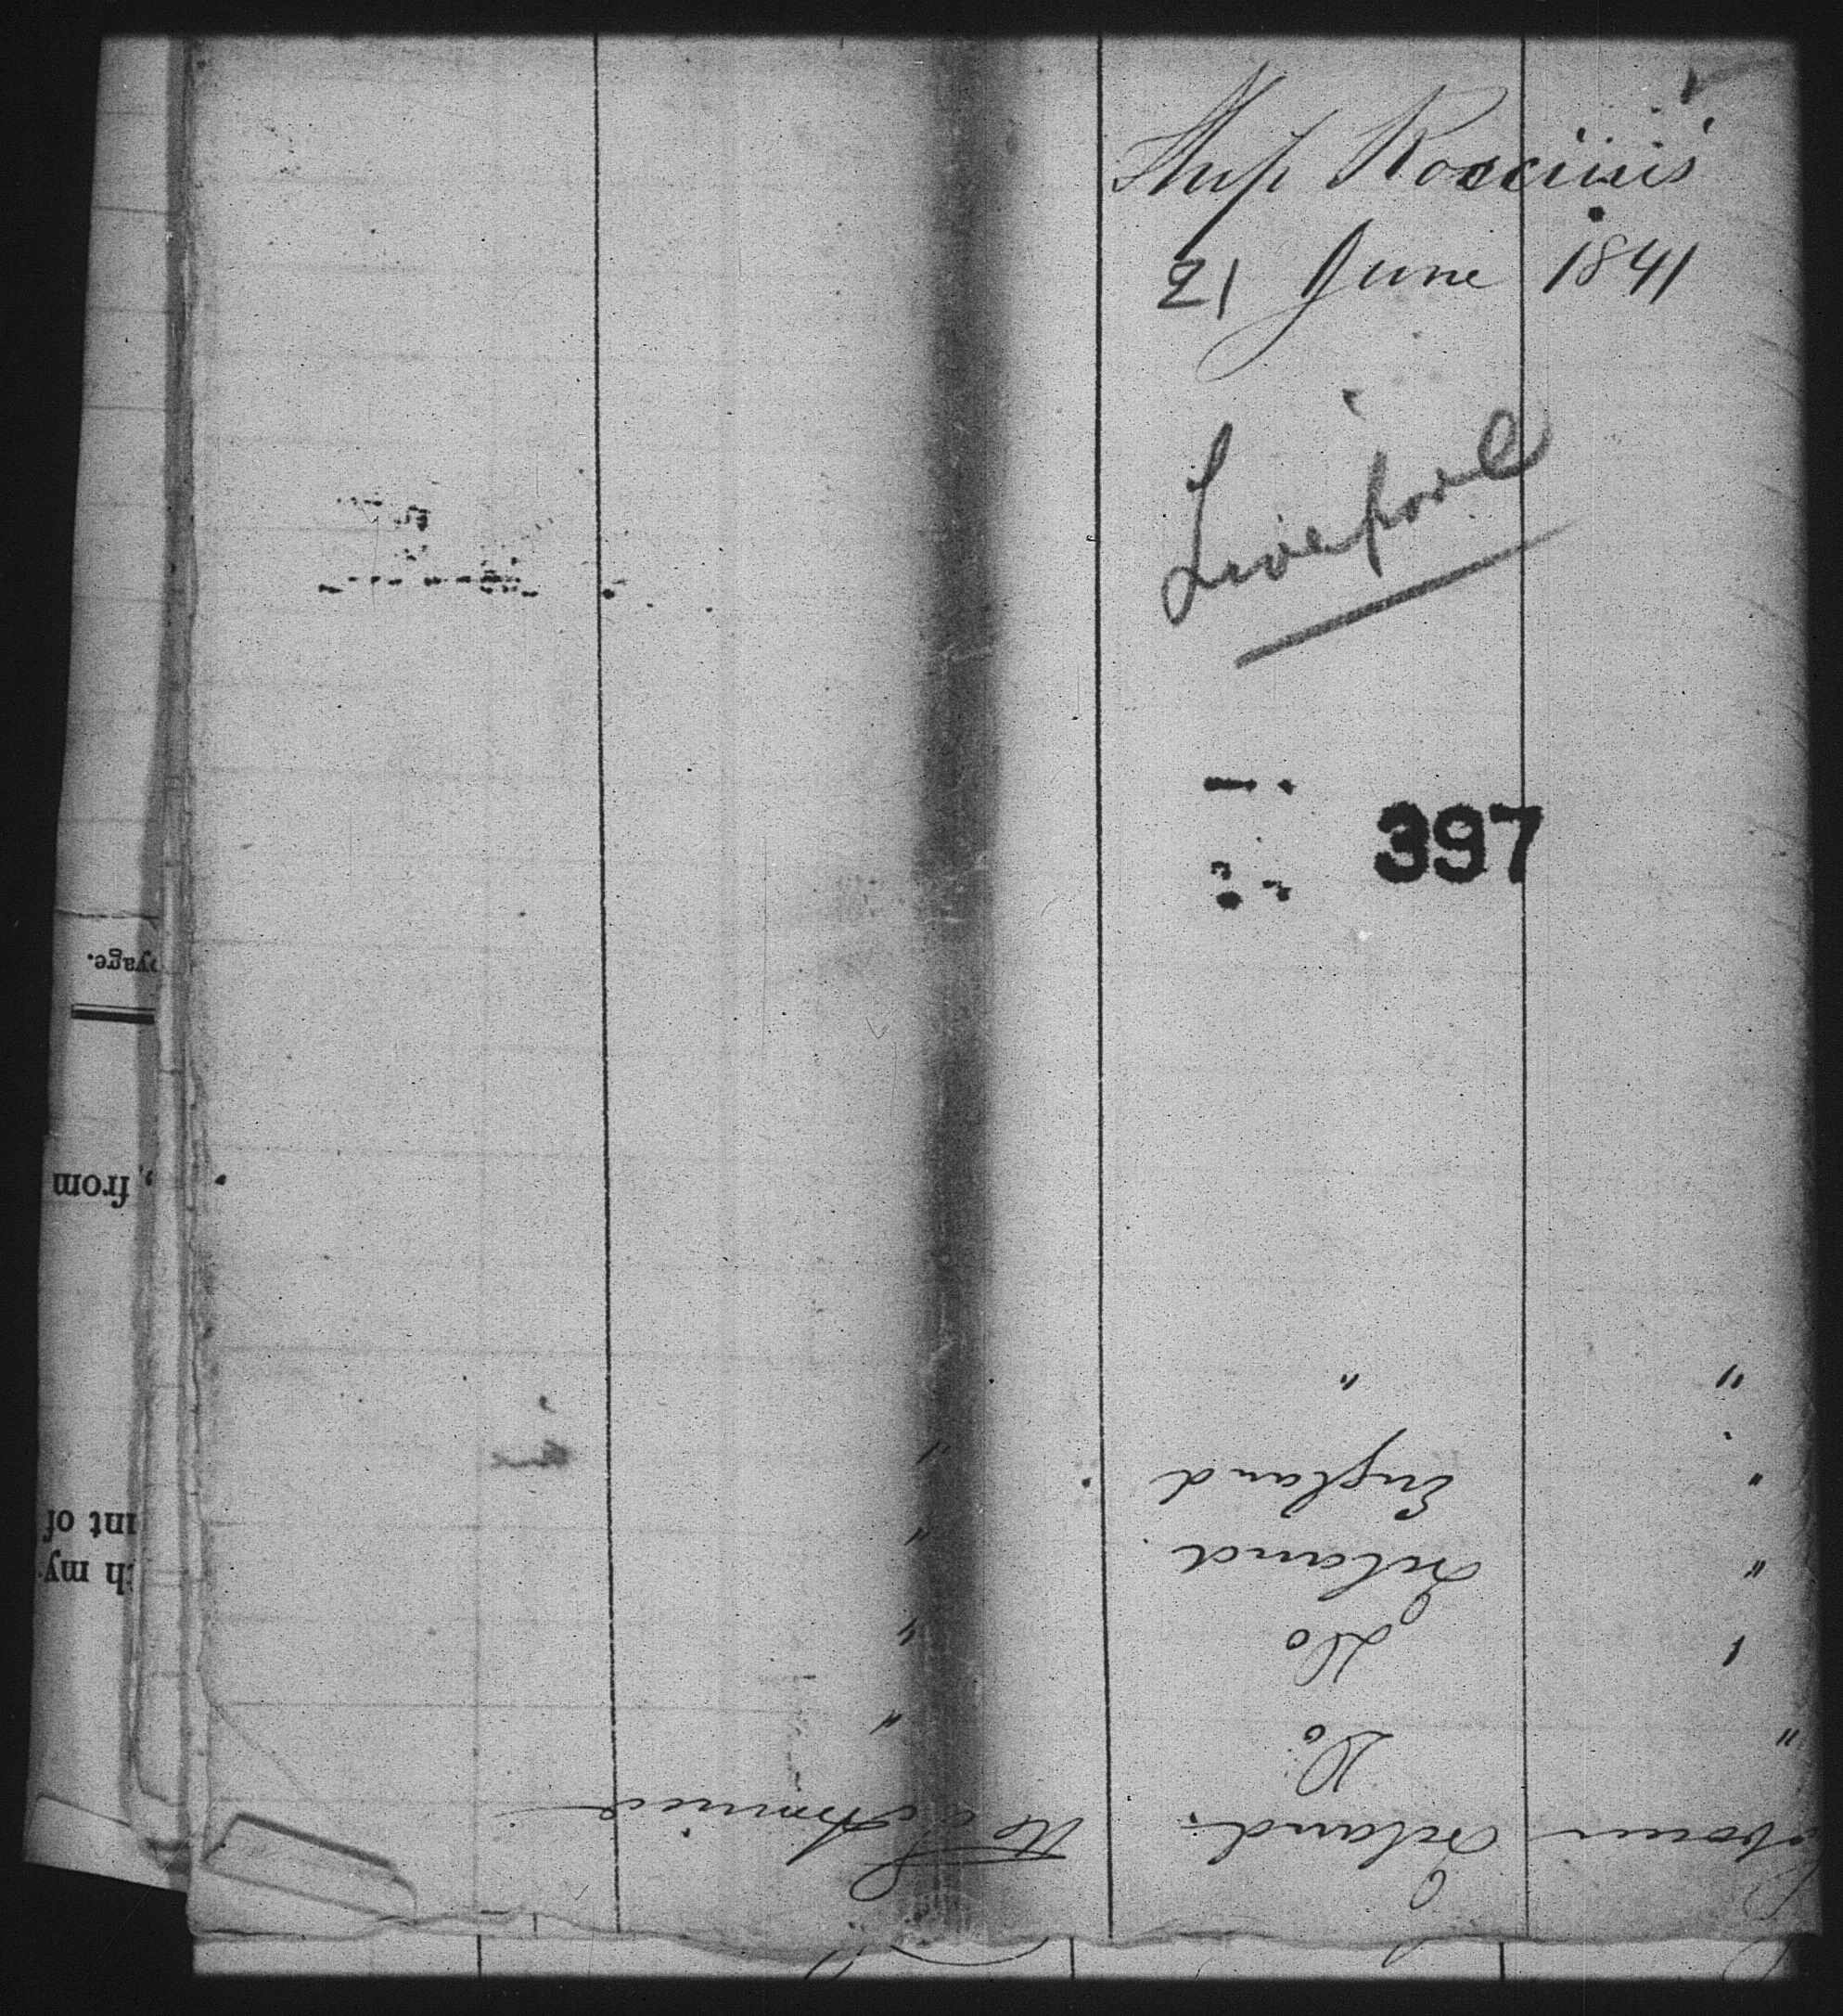 Ship Roscius
21 June 1841
Liverpool
397
Ireland
Do
Do
Ireland
England
"
America
"
"
"
"
"
"
"
"
oyage.
, from
int of
h my